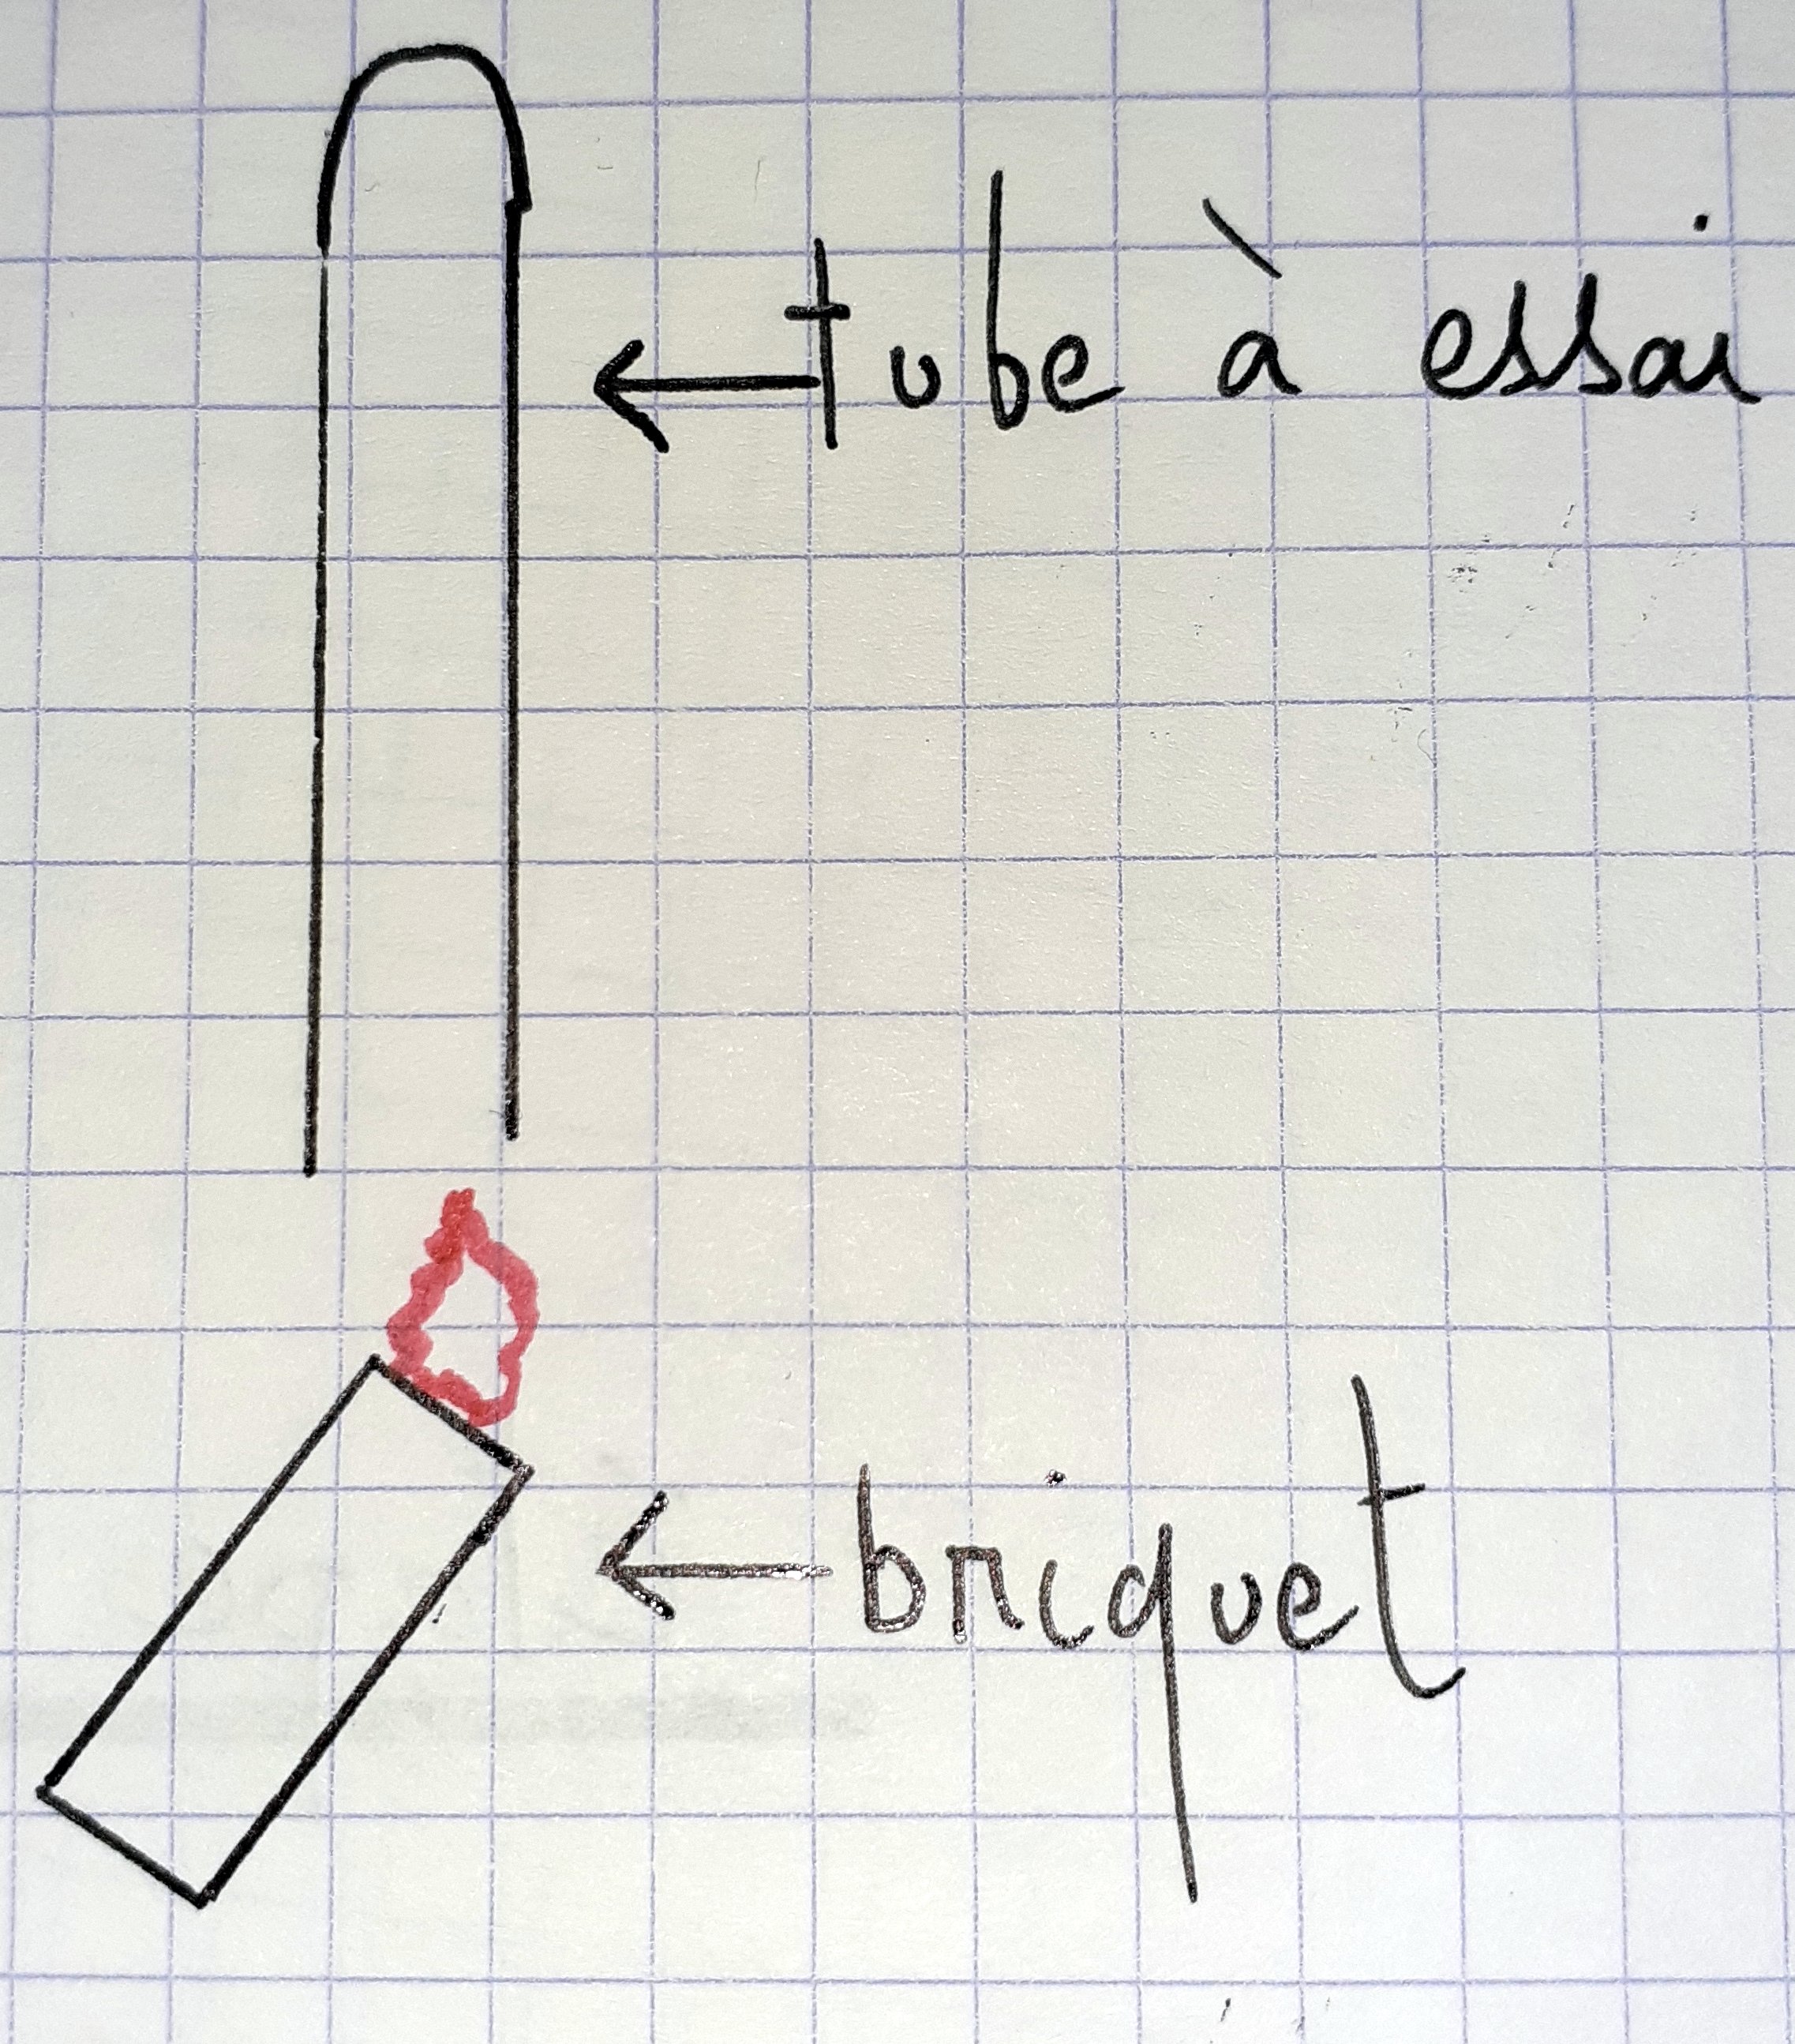 tube à essai
briquet